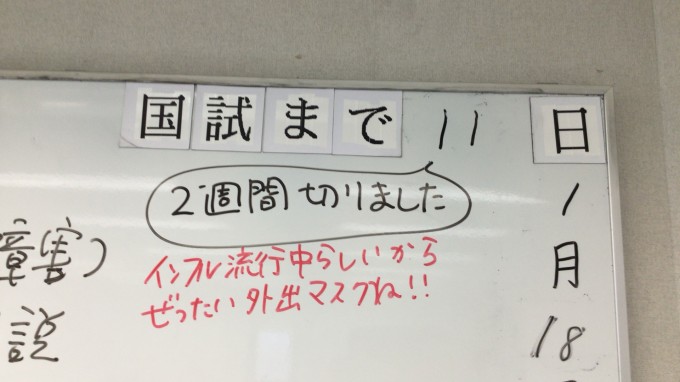 国試まで 11 日
2週間切りました
インフル流行中らしいから
ぜったい外出マスクね!!
障害)
説
1
月
18